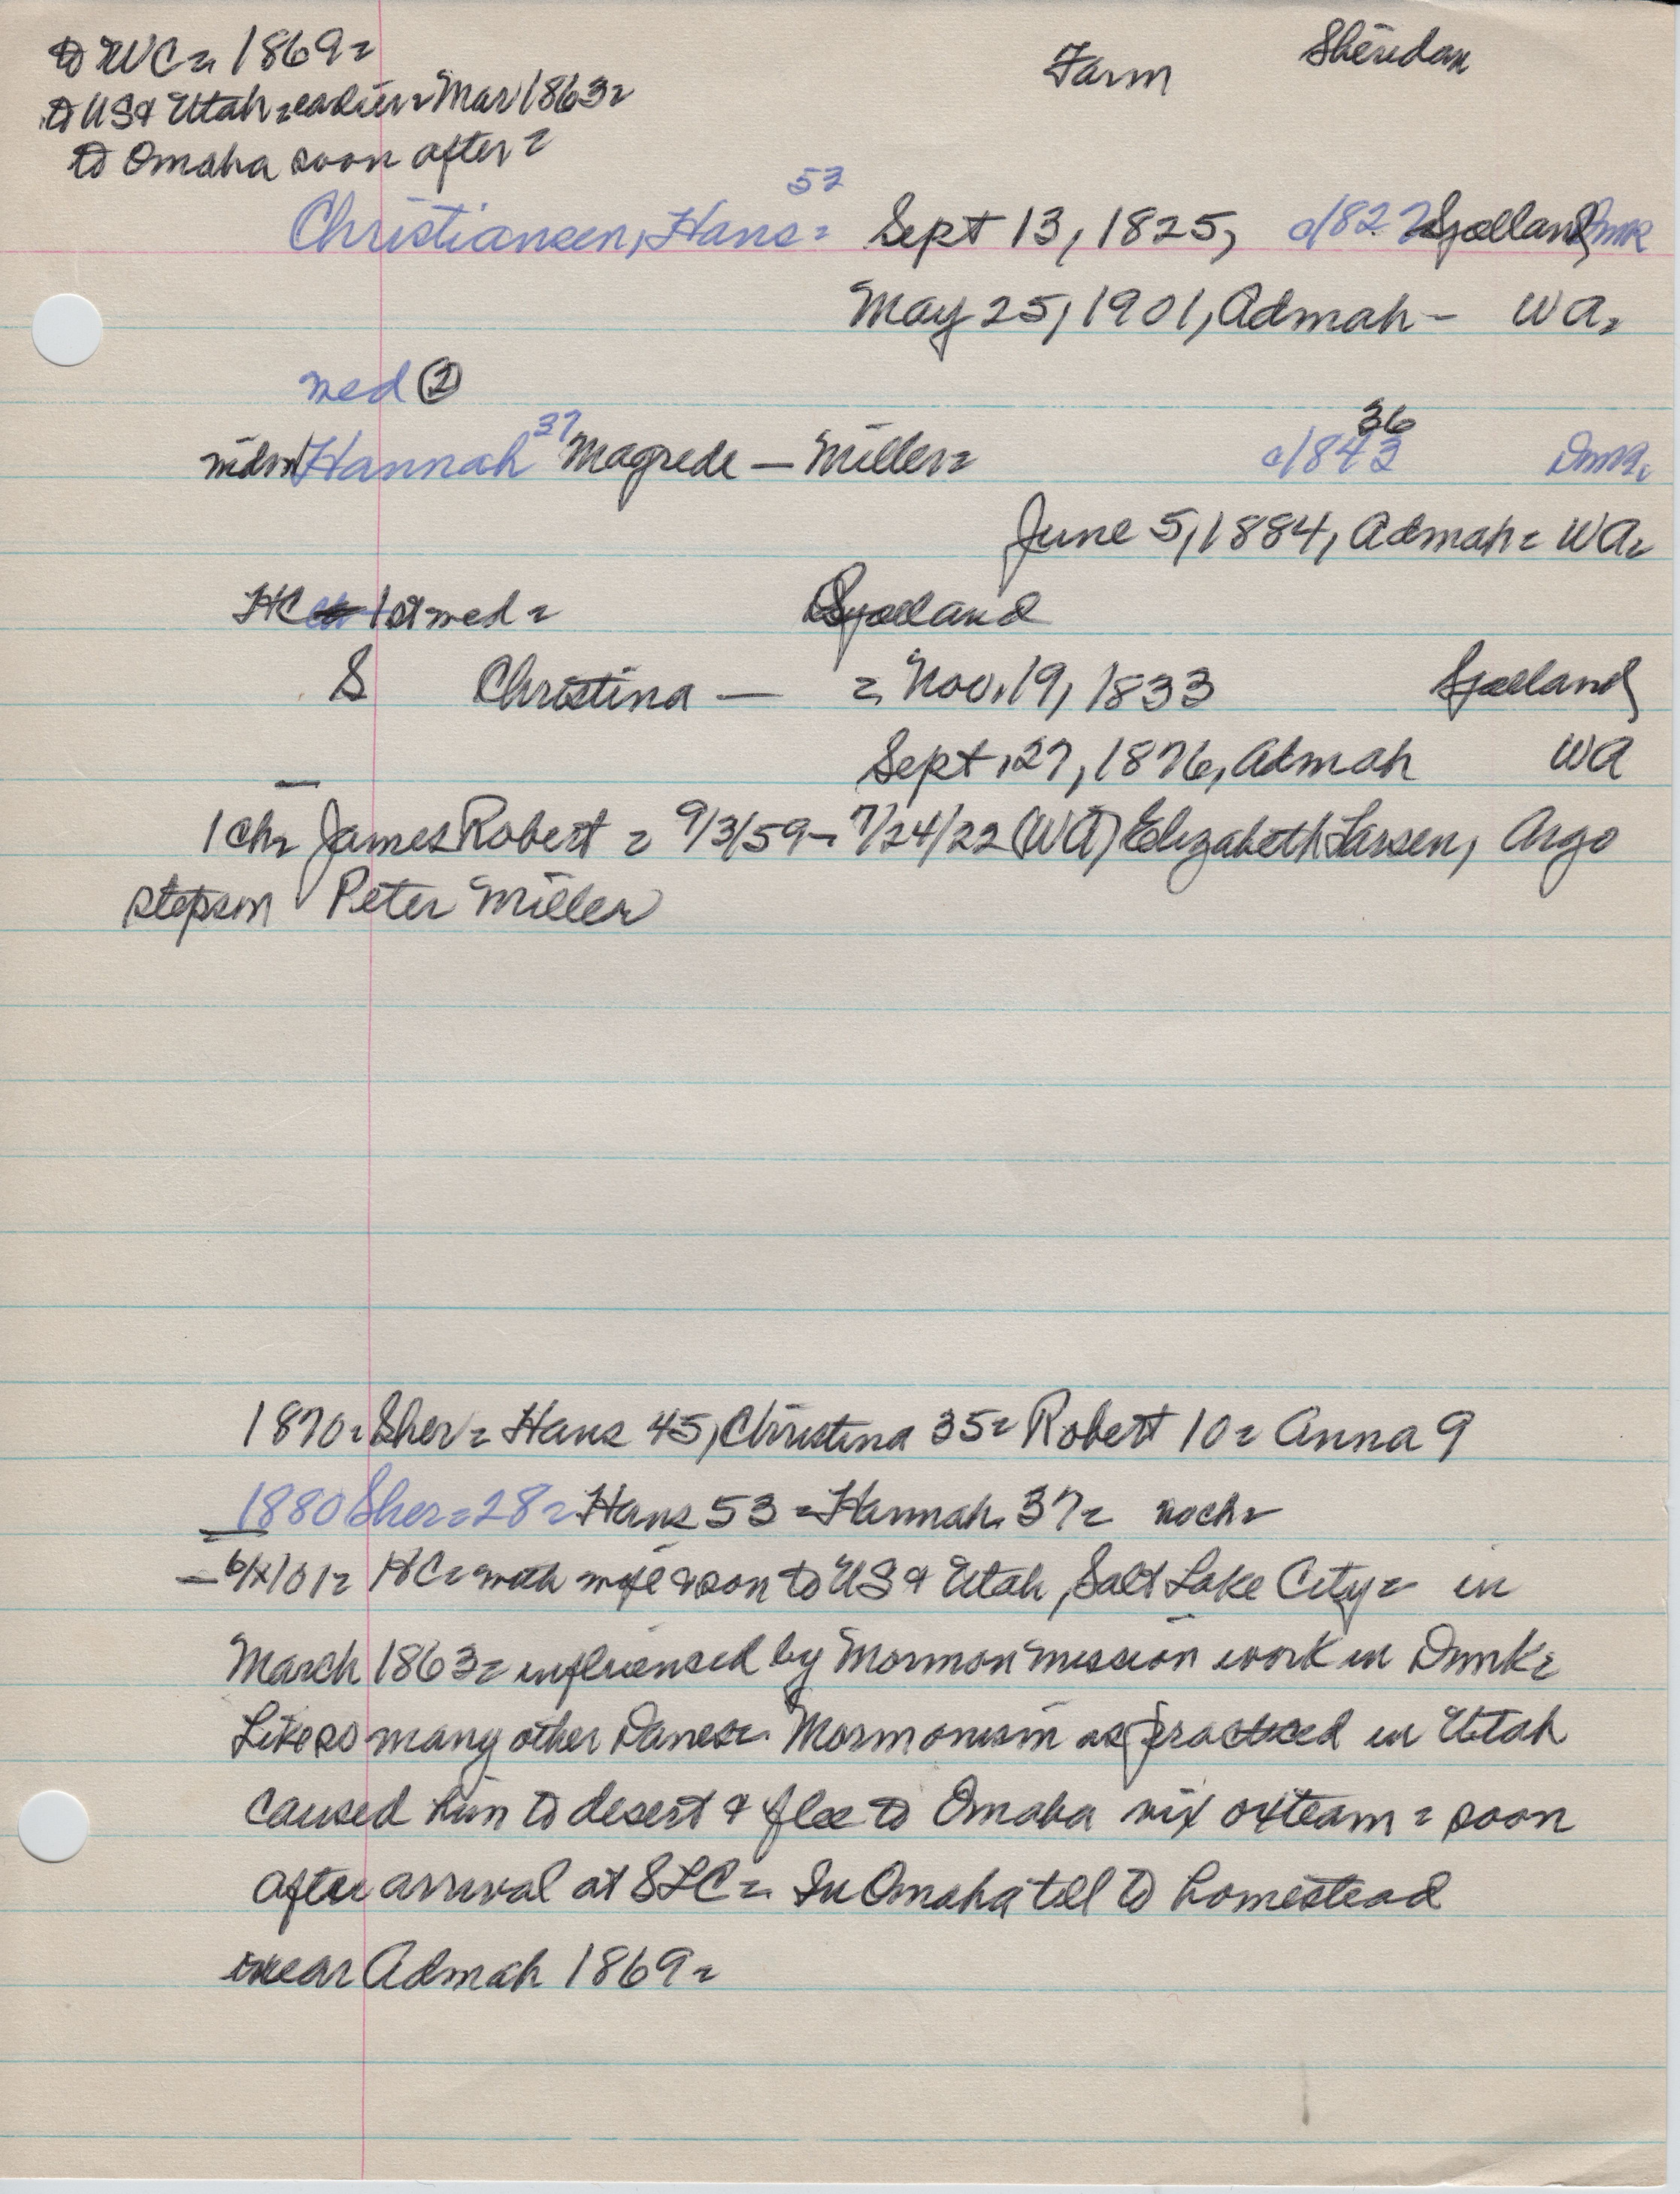 to WC = 1869 =
to US & Utah = earlier = Mar 1863 =
to Omaha soon after =
Farm Sheridan
53
Christiansen, Hans = Sept 13, 1825, c/827 Sjaelland, Dmk
May 25, 1901, Admah - WA =
med ②
37 36
Hannah Magrede — Miller = c/843 Dmk =
June 5, 1884, Admah = WA =
HC 1st med = Sjaelland
S Christina — = Nov. 19, 1833 Sjaelland,
Sept. 27, 1876, Admah WA
1 ch = James Robert = 9/3/59 - 7/24/22 (WA) Elizabeth Larsen, Argo
stepson Peter Miller
1870 = Sher = Hans 45, Christina 35 = Robert 10 = Anna 9
1880 Sher = 28 = Hans 53 = Hannah 37 = noch =
6/x/01 = HC = with wife & son to US & Utah, Salt Lake City = in
March 1863 = influensed by Mormon mission work in Dmk =
Like so many other Danes = Mormonism as practiced in Utah
caused him to desert & flee to Omaha oxteam = soon
after arrival at SLC = In Omaha till to homestead
near Admah 1869 =